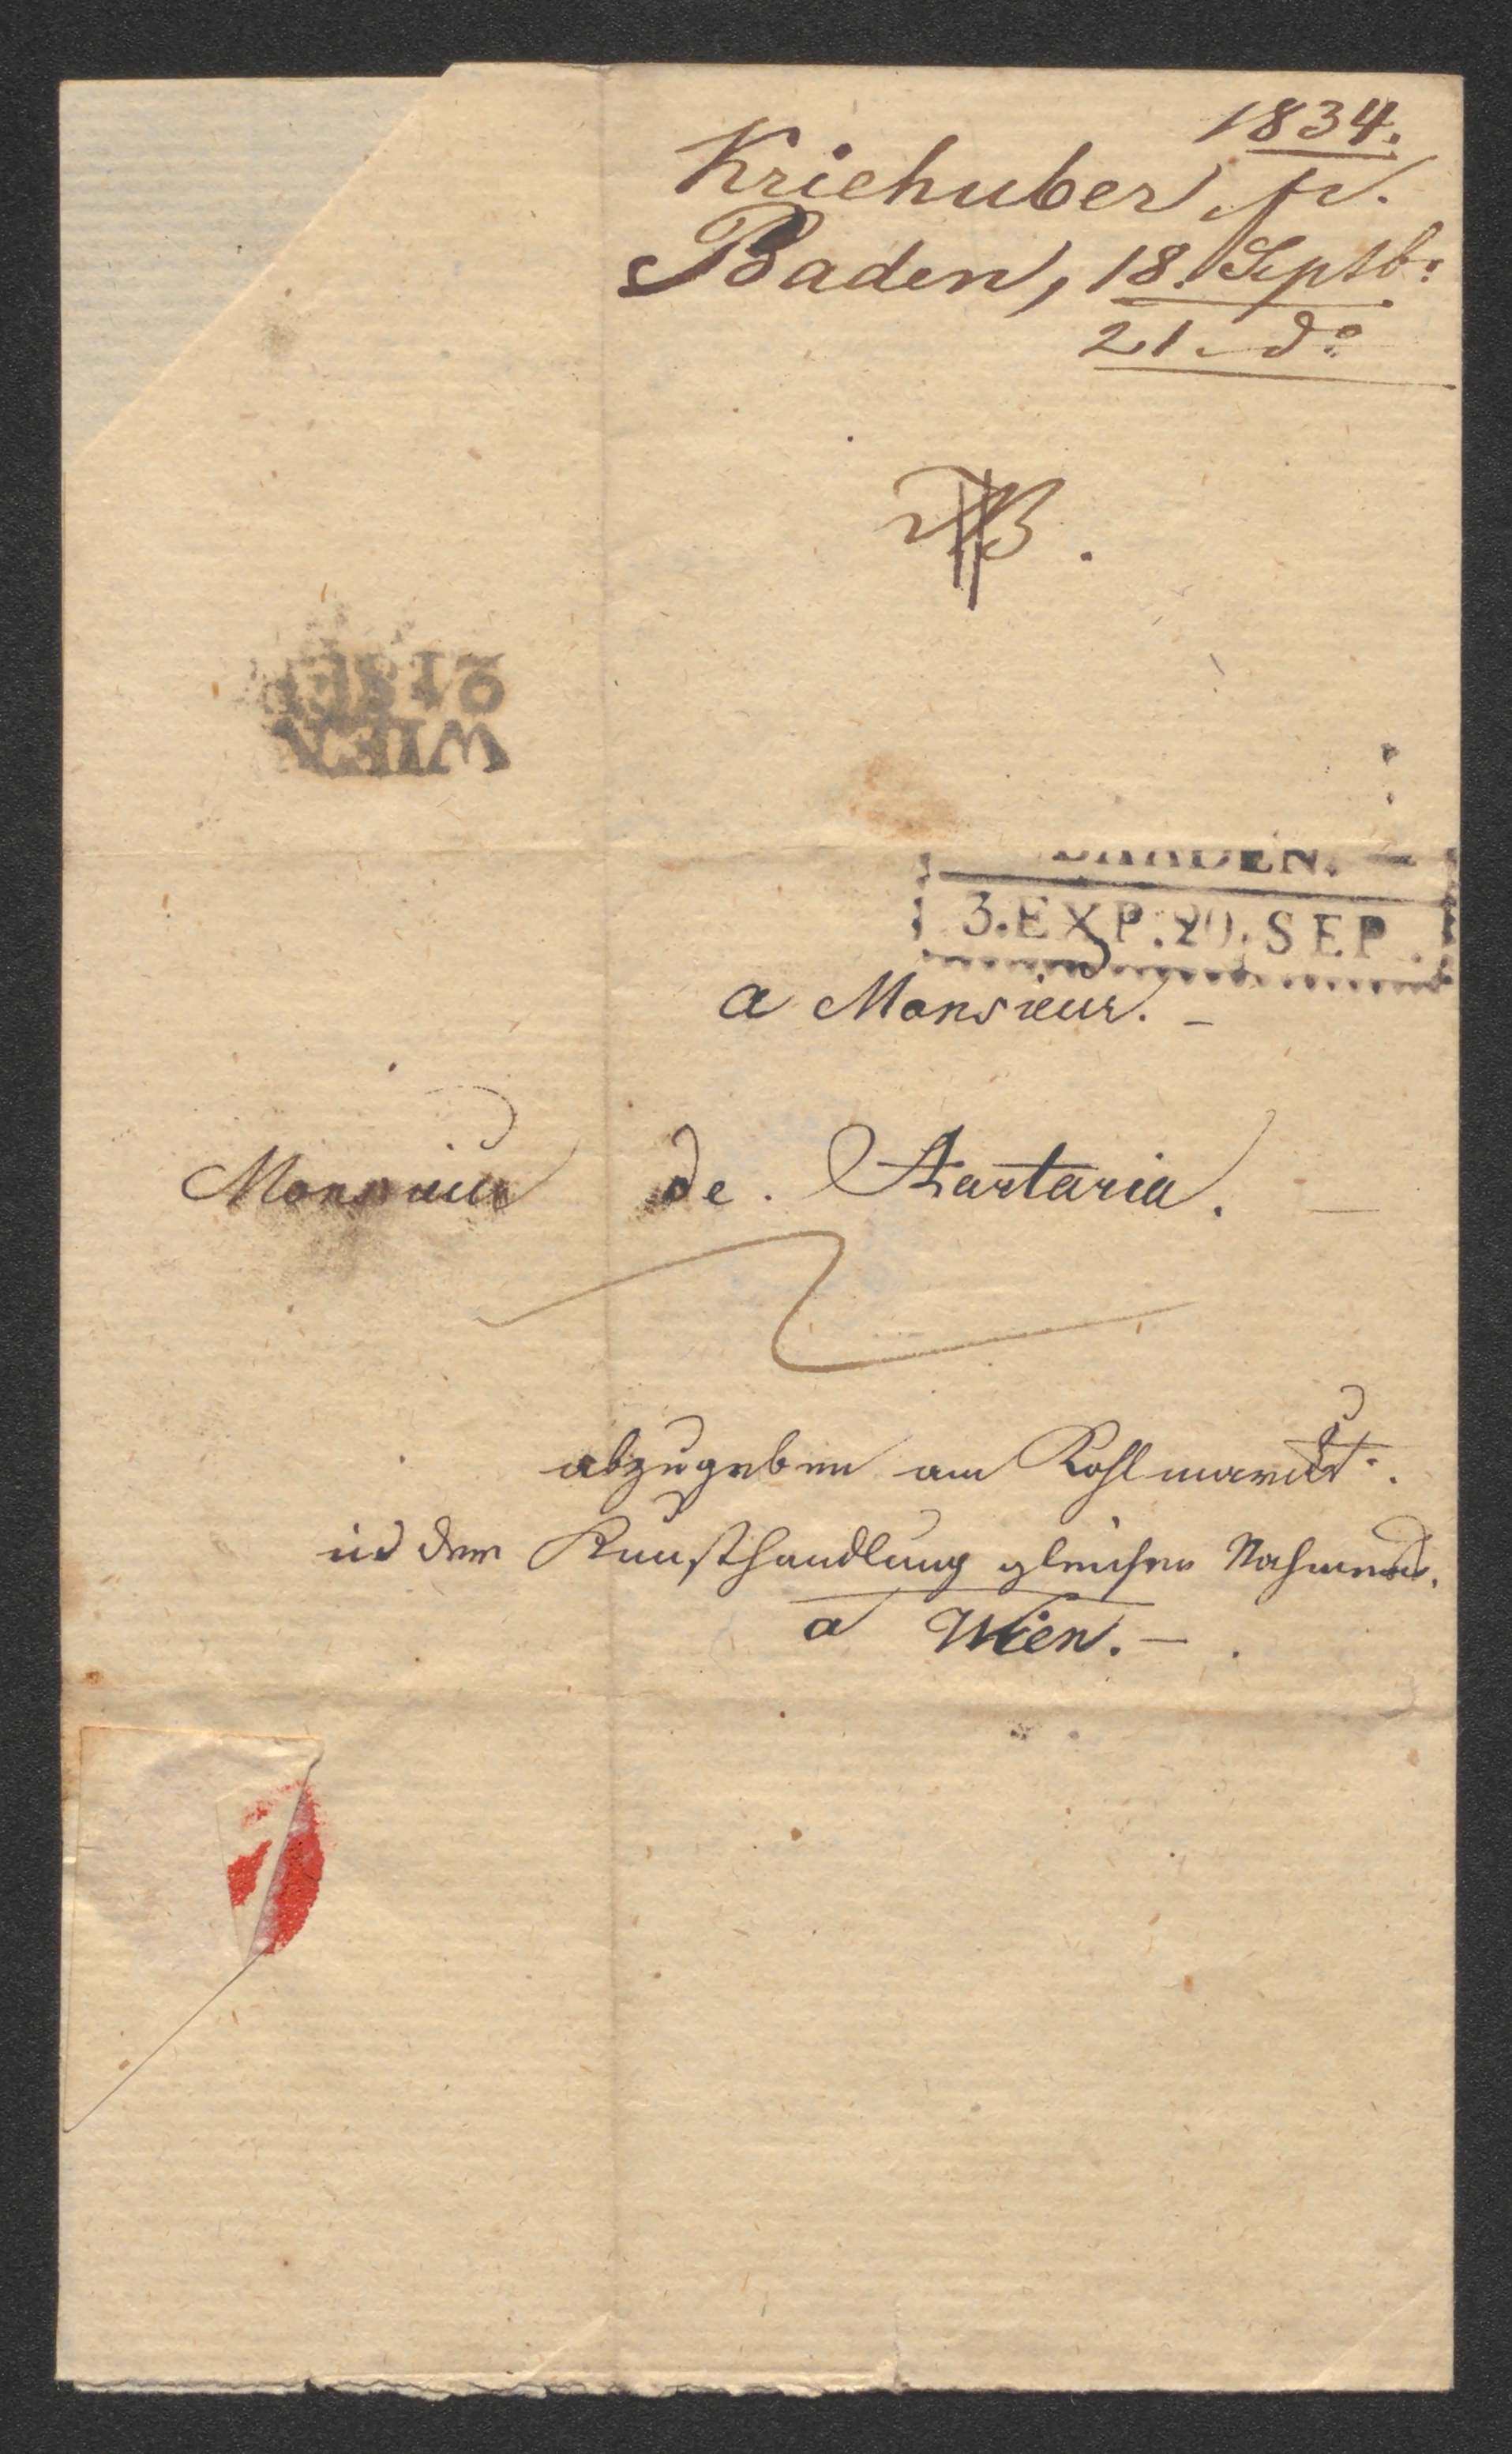 1834.
Kriehuber, jr.
Baden, 18. Septb:
21. do
WIEN
21 SEP
BAADEN.
3. EXP. 20. SEP.
a Monsieur. –
Monsieur de. Artaria. –
abzugeben am Kohlmarckt.
in der Kunsthandlung gleichen Nahmens.
a Wien. –